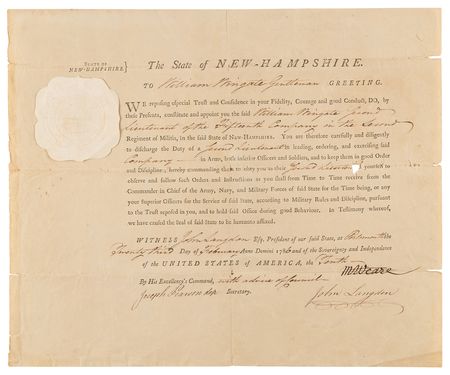 STATE OF
NEW-HAMPSHIRE.
The State of NEW-HAMPSHIRE.
TO William Wingate Gentleman GREETING.
WE reposing especial Trust and Confidence in your Fidelity, Courage and good Conduct, DO, by
these Presents, constitute and appoint you the said William Wingate Second
Lieutenant of the Fifteenth Company in the Second
Regiment of Militia, in the said State of NEW-HAMPSHIRE. You are therefore carefully and diligently
to discharge the Duty of a Second Lieutenant in leading, ordering, and exercising said
Company in Arms, both inferior Officers and Soldiers, and to keep them in good Order
and Discipline; hereby commanding them to obey you as their Second Lieutenant yourself to
observe and follow such Orders and Instructions as you shall from Time to Time receive from the
Commander in Chief of the Army, Navy, and Military Forces of said State for the Time being, or any
your Superior Officers for the Service of said State, according to Military Rules and Discipline, pursuant
to the Trust reposed in you, and to hold said Office during good Behaviour. In Testimony whereof,
we have caused the Seal of said State to be hereunto affixed.
WITNESS John Langdon Esq. President of our said State, at Portsmouth the
Twenty third Day of February Anno Domini 1786 and of the Sovereignty and Independence
of the UNITED STATES of AMERICA, the Tenth
MWeare
By His Excellency's Command, with advice of Council
Joseph Pearson Secretary.
John Langdon